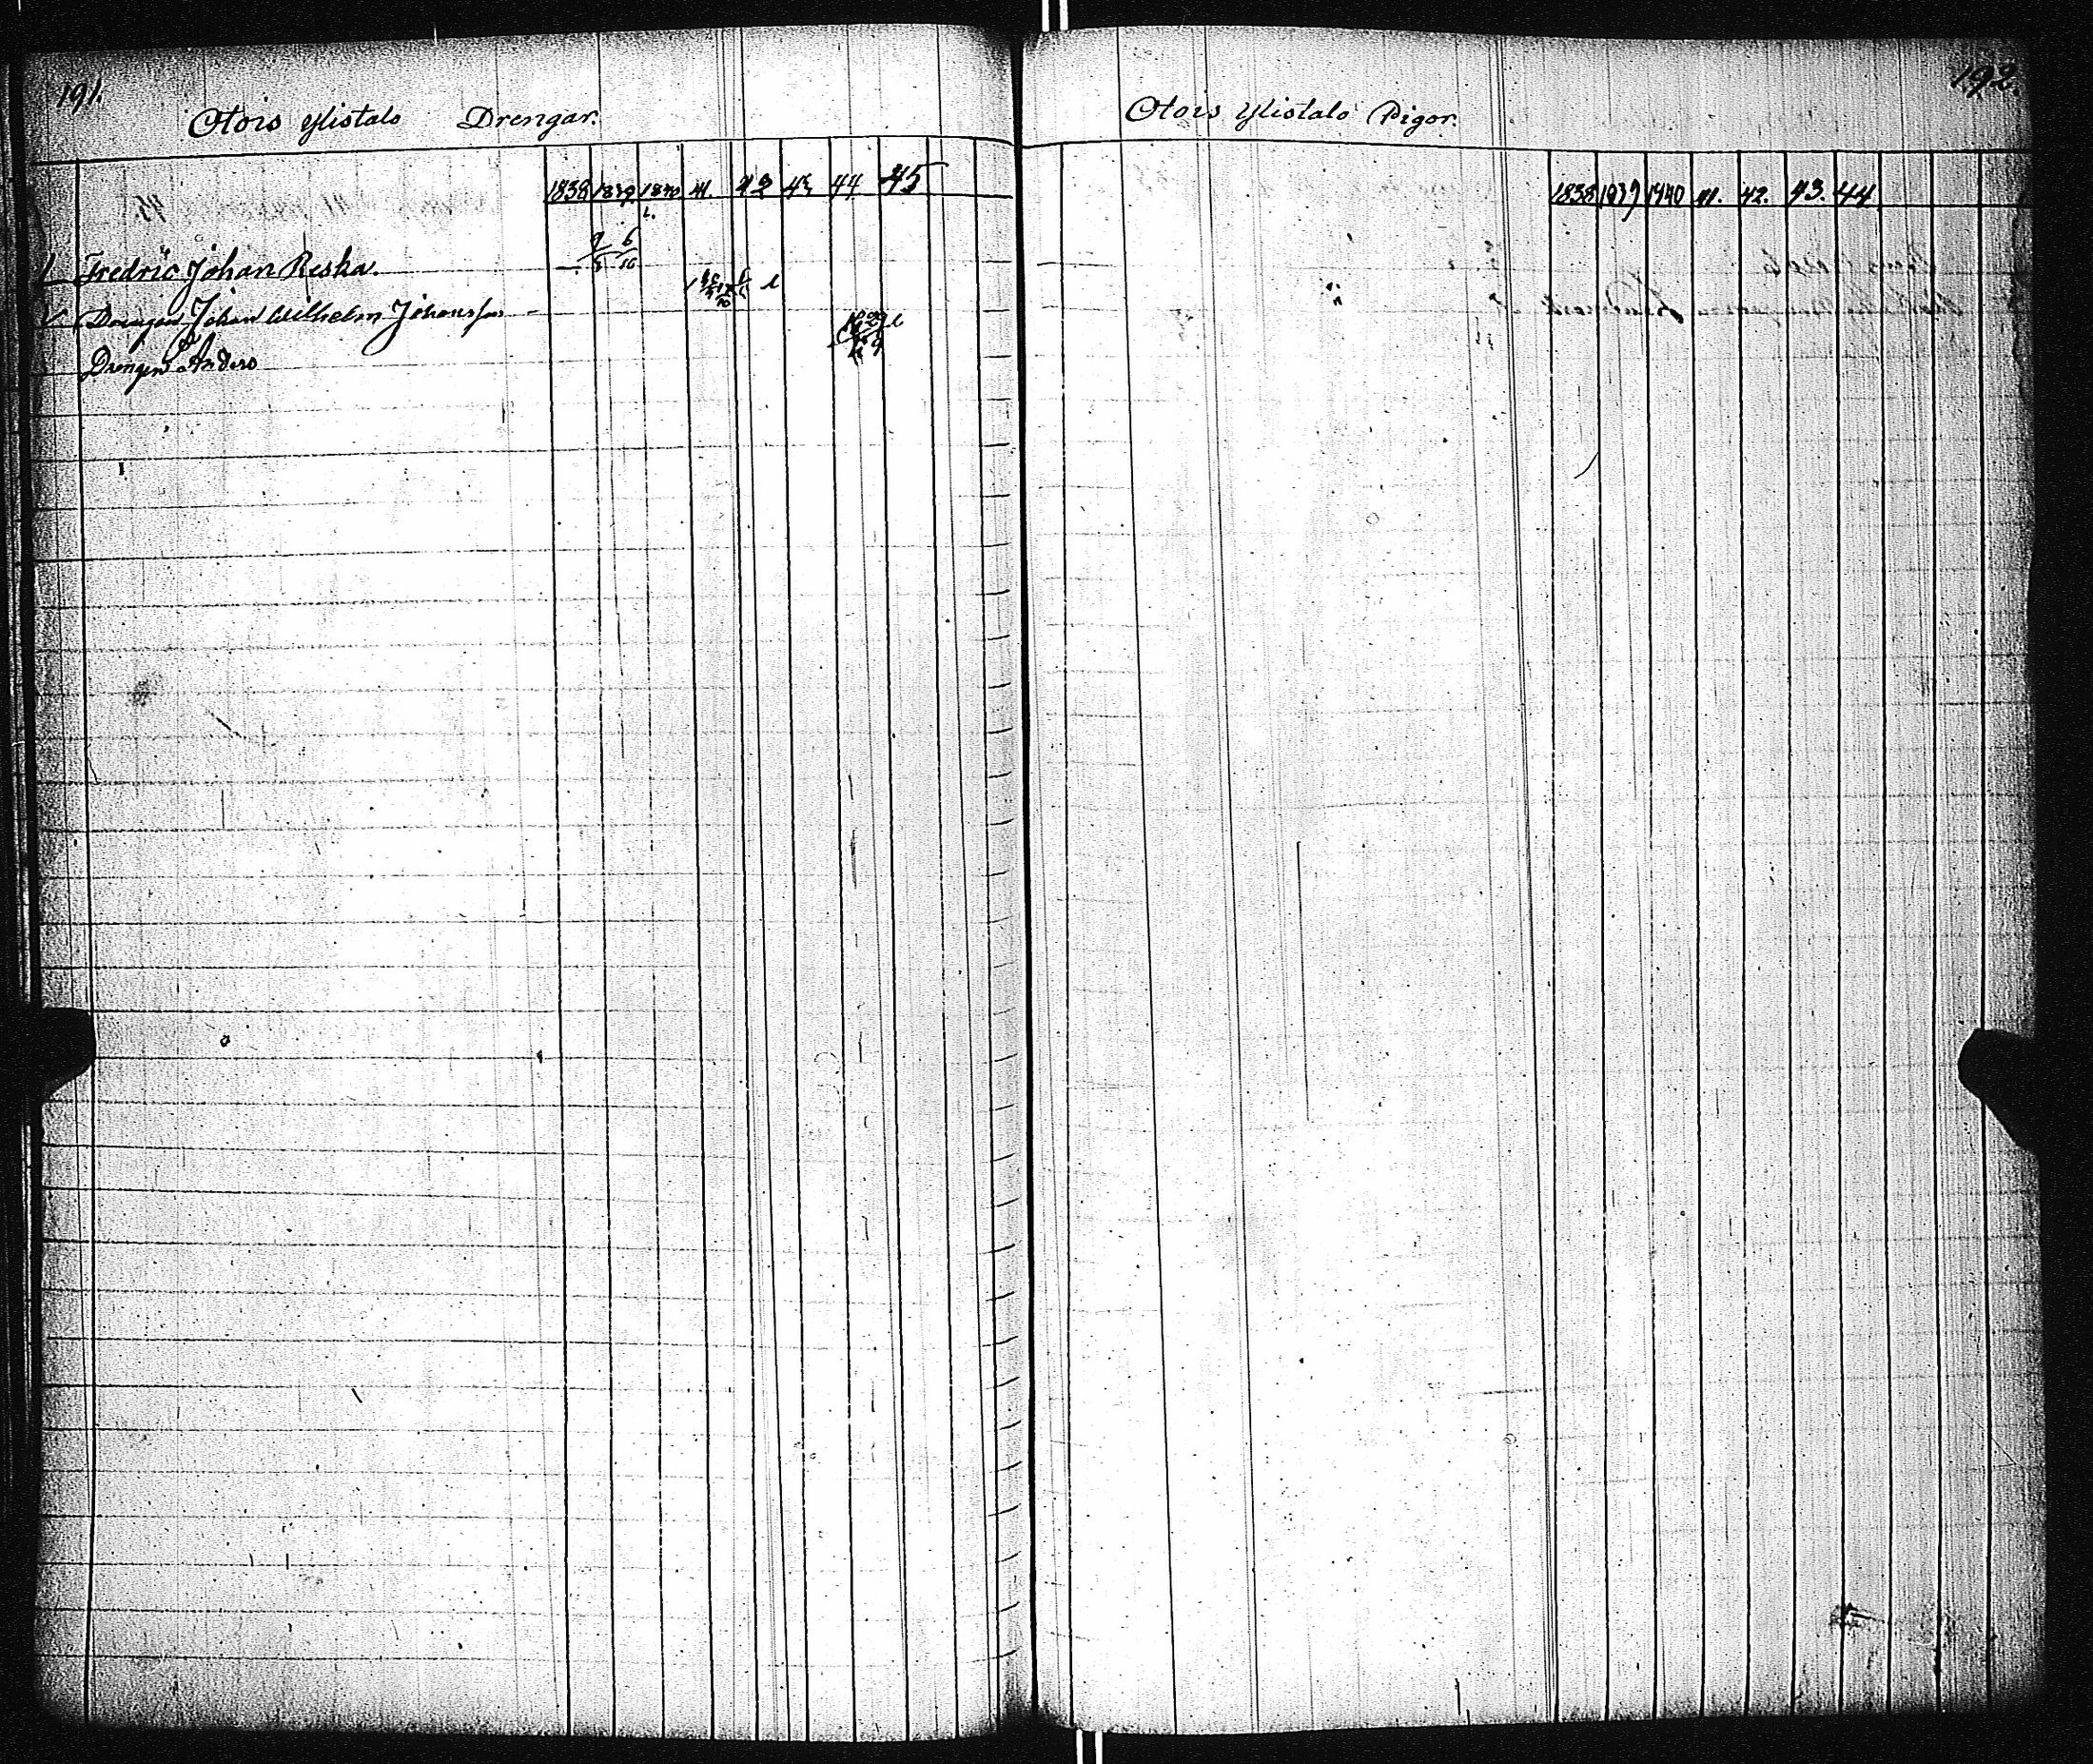 191.
Otois Ylistalo Drengar.
1838 1839. 1840. 41. 42 43 44 45
Fredric Johan Reska.
9 6
5 16
Drengen Johan Wilhelm Johansson
Drengen Anders
192.
Otois Ylistalo Pigor.
1838 1839 1840 41. 42. 43. 44